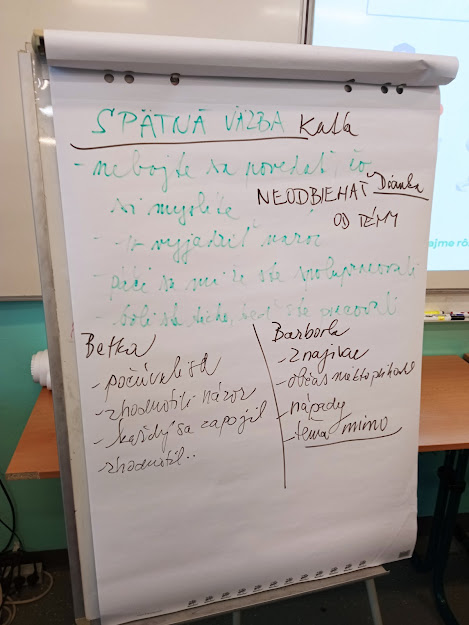 SPÄTNÁ VÄZBA Katka
- nebojte sa povedať, čo
si myslíte
NEODBIEHAŤ Dianka
OD TÉMY
- vyjadriť názor
- páči sa mi že ste spolupracovali
- boli ste ticho, keď ste pracovali
Betka
- počúvali sa
- zhodnotili názor
- každý sa zapojil
- zhodnotil..
Barborka
- najviac
- občas niekto
- nápady
- téma mimo
ajme